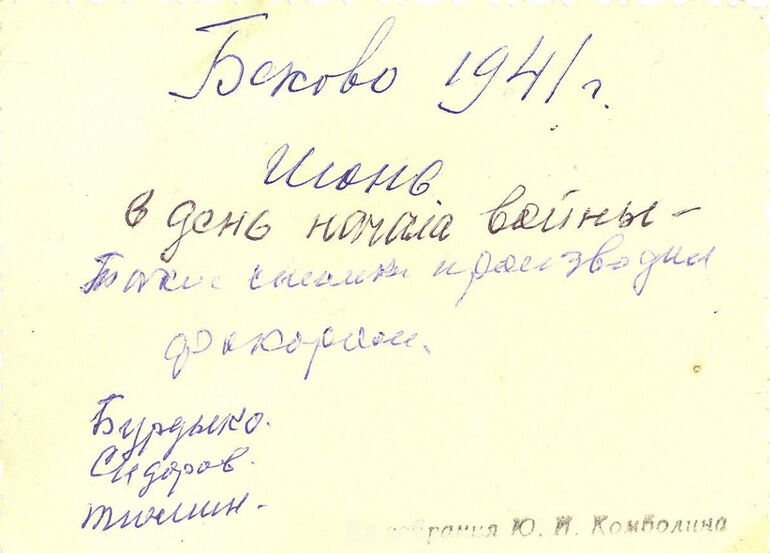 Беково 1941 г.
Июнь
в день начала войны –
Такие снимки производил
фокором.
Бурдыко.
Сидоров.
Тюмин.
Из собрания Ю. И. Комболина